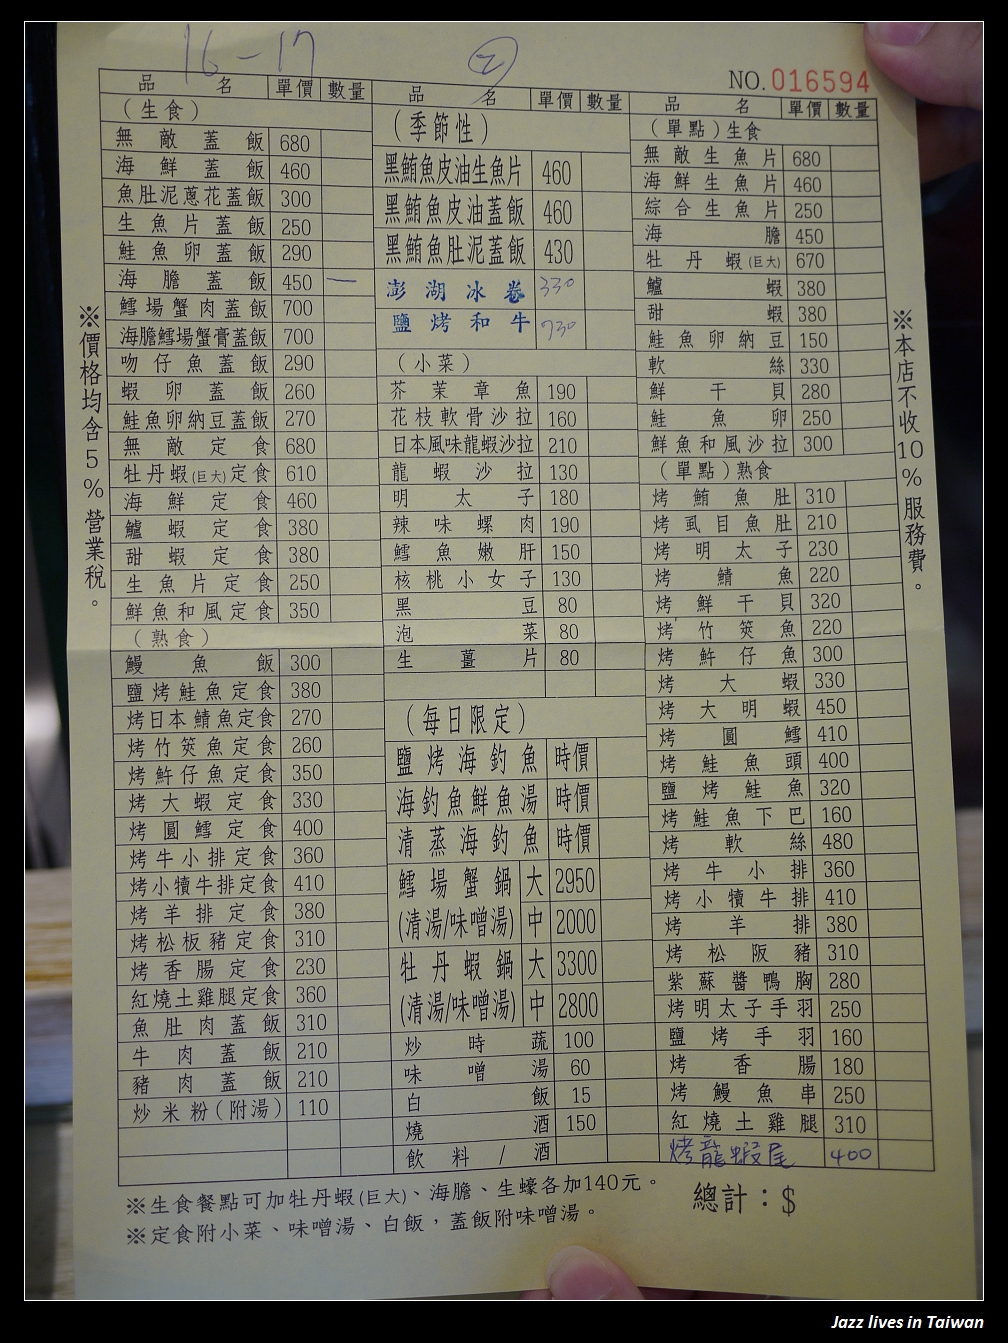 16-17
2
NO.016594
品名 單價 數量
(生食)
無敵蓋飯 680
海鮮蓋飯 460
魚肚泥蔥花蓋飯 300
生魚片蓋飯 250
鮭魚卵蓋飯 290
海膽蓋飯 450 一
鱈場蟹肉蓋飯 700
海膽鱈場蟹膏蓋飯 700
吻仔魚蓋飯 290
蝦卵蓋飯 260
鮭魚卵納豆蓋飯 270
無敵定食 680
牡丹蝦(巨大)定食 610
海鮮定食 460
鱸蝦定食 380
甜蝦定食 380
生魚片定食 250
鮮魚和風定食 350
(熟食)
鰻魚飯 300
鹽烤鮭魚定食 380
烤日本鯖魚定食 270
烤竹筴魚定食 260
烤魽仔魚定食 350
烤大蝦定食 330
烤圓鱈定食 400
烤牛小排定食 360
烤小犢牛排定食 410
烤羊排定食 380
烤松板豬定食 310
烤香腸定食 230
紅燒土雞腿定食 360
魚肚肉蓋飯 310
牛肉蓋飯 210
豬肉蓋飯 210
炒米粉(附湯) 110
品名 單價 數量
(季節性)
黑鮪魚皮油生魚片 460
黑鮪魚皮油蓋飯 460
黑鮪魚肚泥蓋飯 430
澎湖冰卷 330
鹽烤和牛 930
(小菜)
芥茉章魚 190
花枝軟骨沙拉 160
日本風味龍蝦沙拉 210
龍蝦沙拉 130
明太子 180
辣味螺肉 190
鱈魚嫩肝 150
核桃小女子 130
黑豆 80
泡菜 80
生薑片 80
(每日限定)
鹽烤海釣魚 時價
海釣魚鮮魚湯 時價
清蒸海釣魚 時價
鱈場蟹鍋 大 2950
(清湯/味噌湯) 中 2000
牡丹蝦鍋 大 3300
(清湯/味噌湯) 中 2800
炒時蔬 100
味噌湯 60
白飯 15
燒酒 150
飲料/酒
品名 單價 數量
(單點)生食
無敵生魚片 680
海鮮生魚片 460
綜合生魚片 250
海膽 450
牡丹蝦(巨大) 670
鱸蝦 380
甜蝦 380
鮭魚卵納豆 150
軟絲 330
鮮干貝 280
鮭魚卵 250
鮮魚和風沙拉 300
(單點)熟食
烤鮪魚肚 310
烤虱目魚肚 210
烤明太子 230
烤鯖魚 220
烤鮮干貝 320
烤竹筴魚 220
烤魽仔魚 300
烤大蝦 330
烤大明蝦 450
烤圓鱈 410
烤鮭魚頭 400
鹽烤鮭魚 320
烤鮭魚下巴 160
烤軟絲 480
烤牛小排 360
烤小犢牛排 410
烤羊排 380
烤松阪豬 310
紫蘇醬鴨胸 280
烤明太子手羽 250
鹽烤手羽 160
烤香腸 180
烤鰻魚串 250
紅燒土雞腿 310
烤龍蝦尾 400
※價格均含5%營業稅。
※本店不收10%服務費。
※生食餐點可加牡丹蝦(巨大)、海膽、生蠔各加140元。
※定食附小菜、味噌湯、白飯，蓋飯附味噌湯。
總計：$
Jazz lives in Taiwan